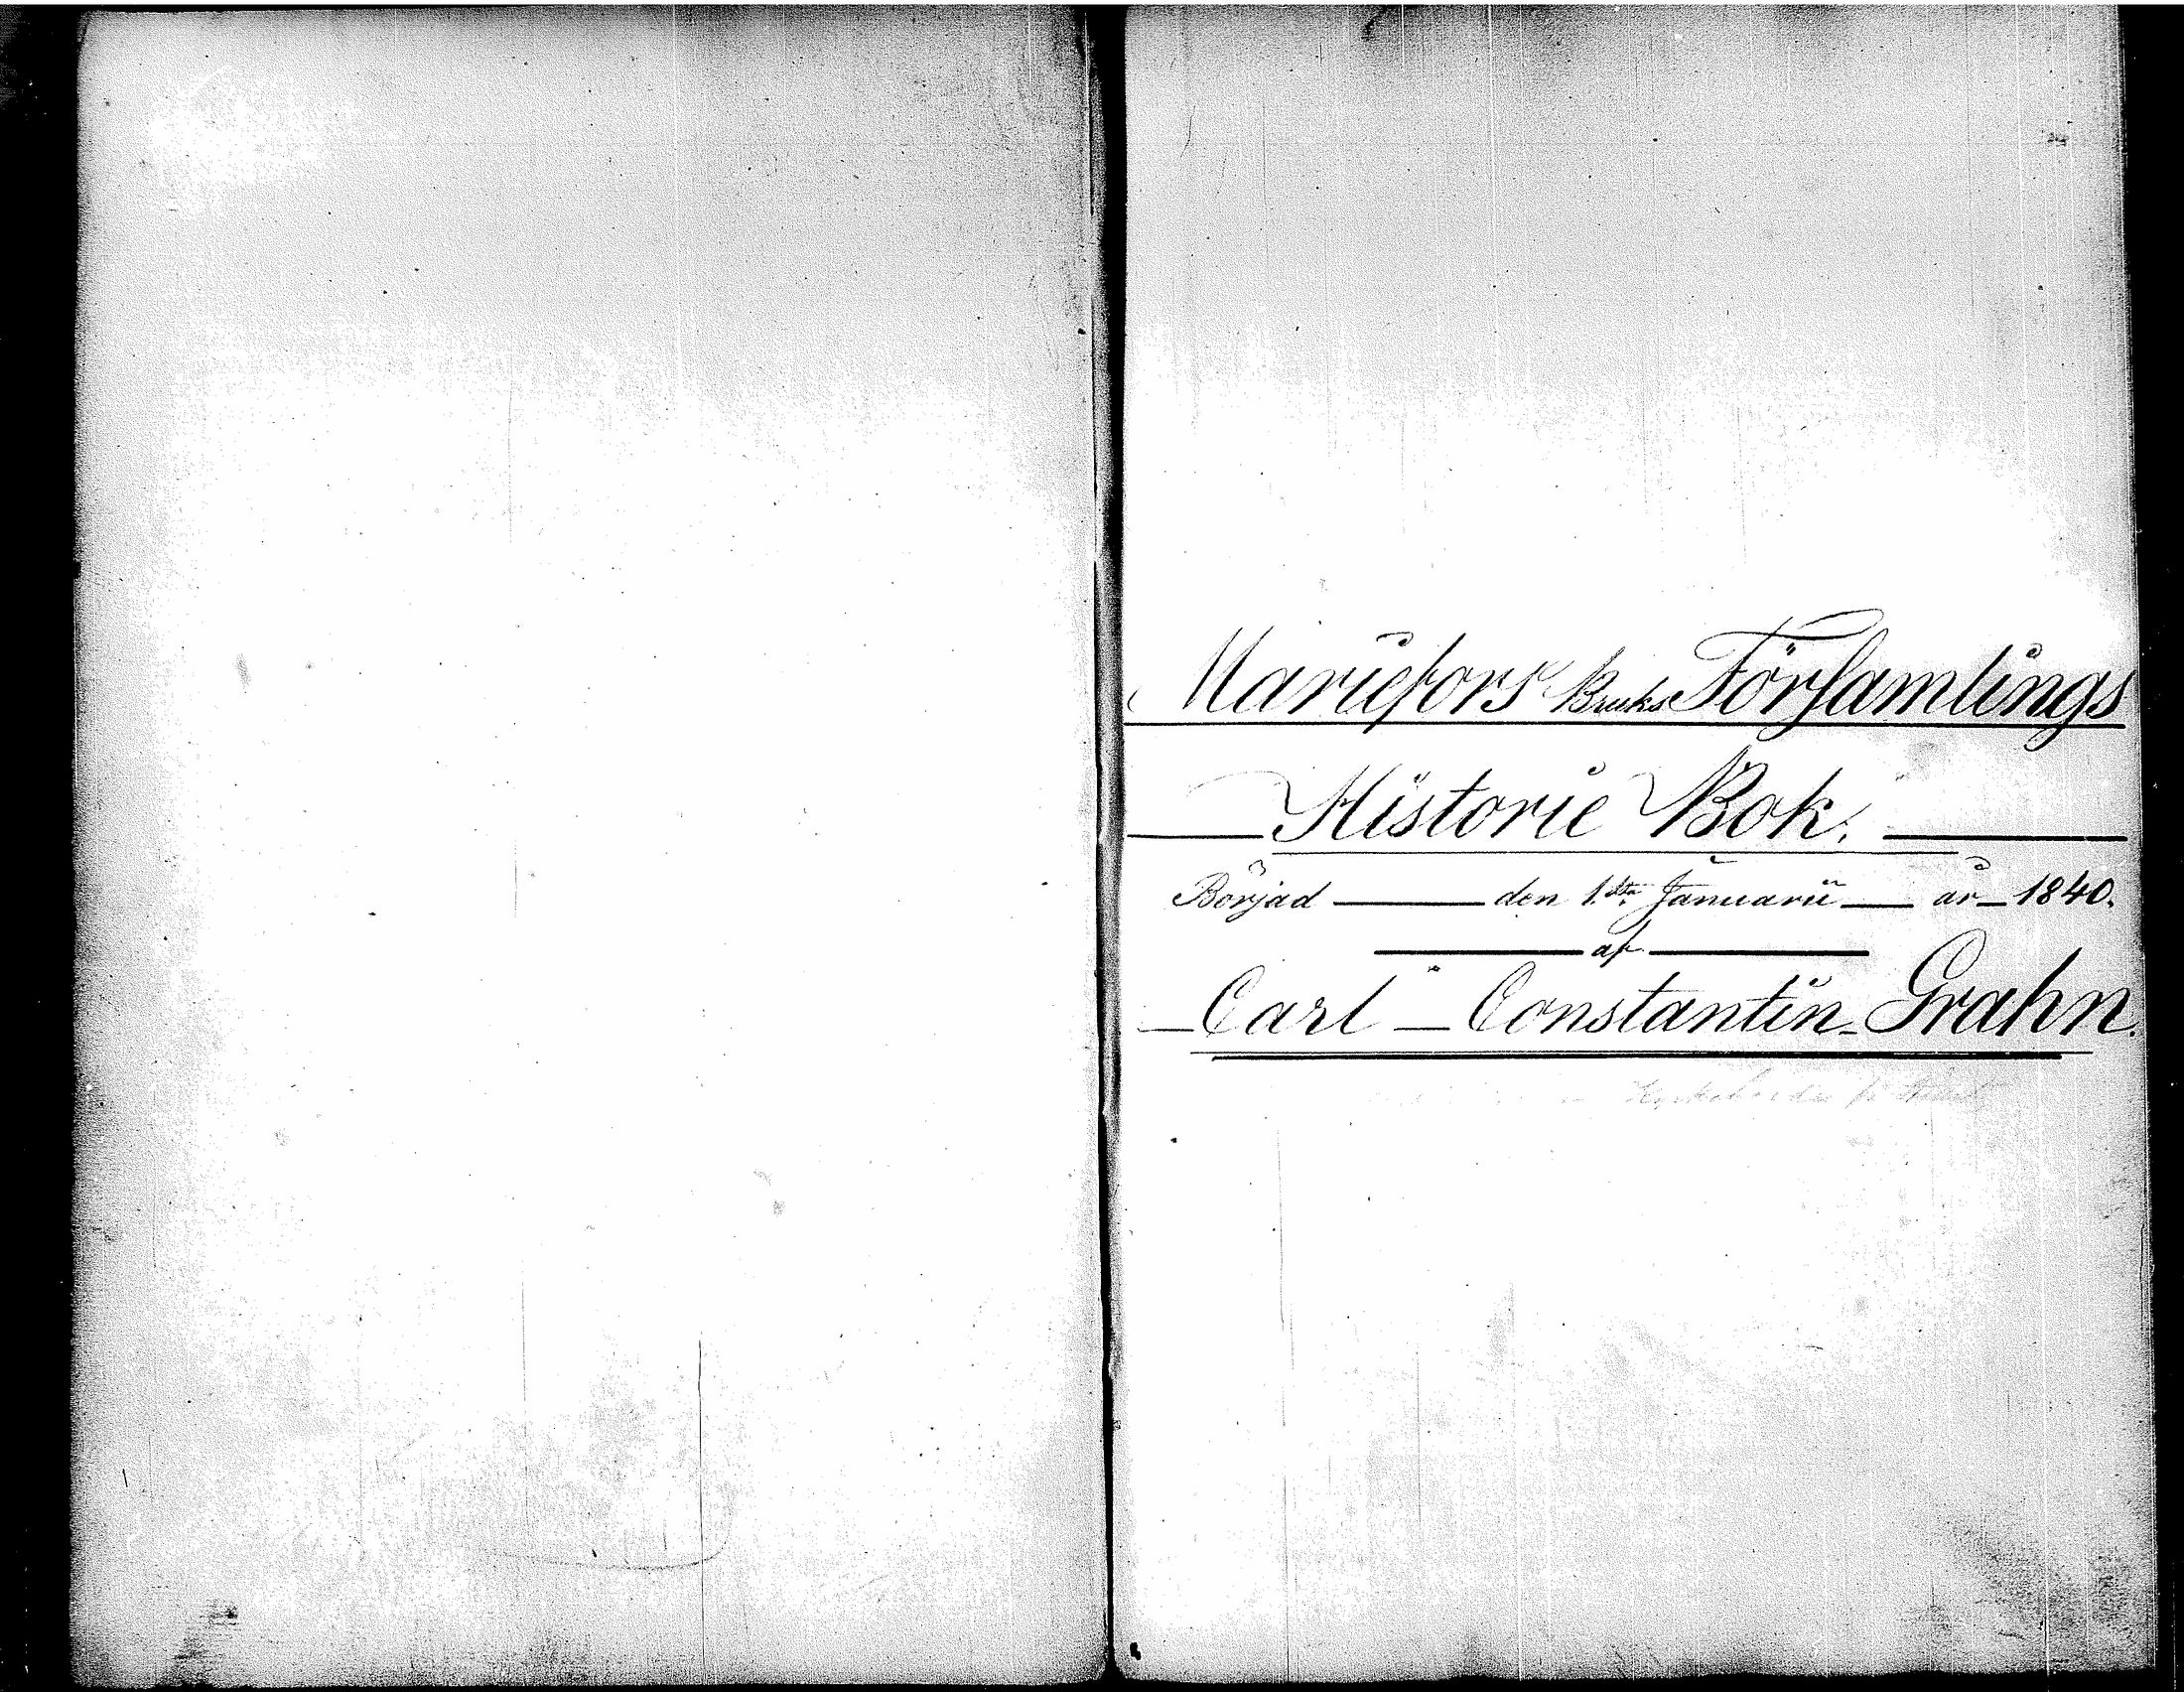 Mariefors Bruks Församlings
Historie Bok.
Börjad den 1sta Januarii år 1840.
af
Carl Constantin Grahn.